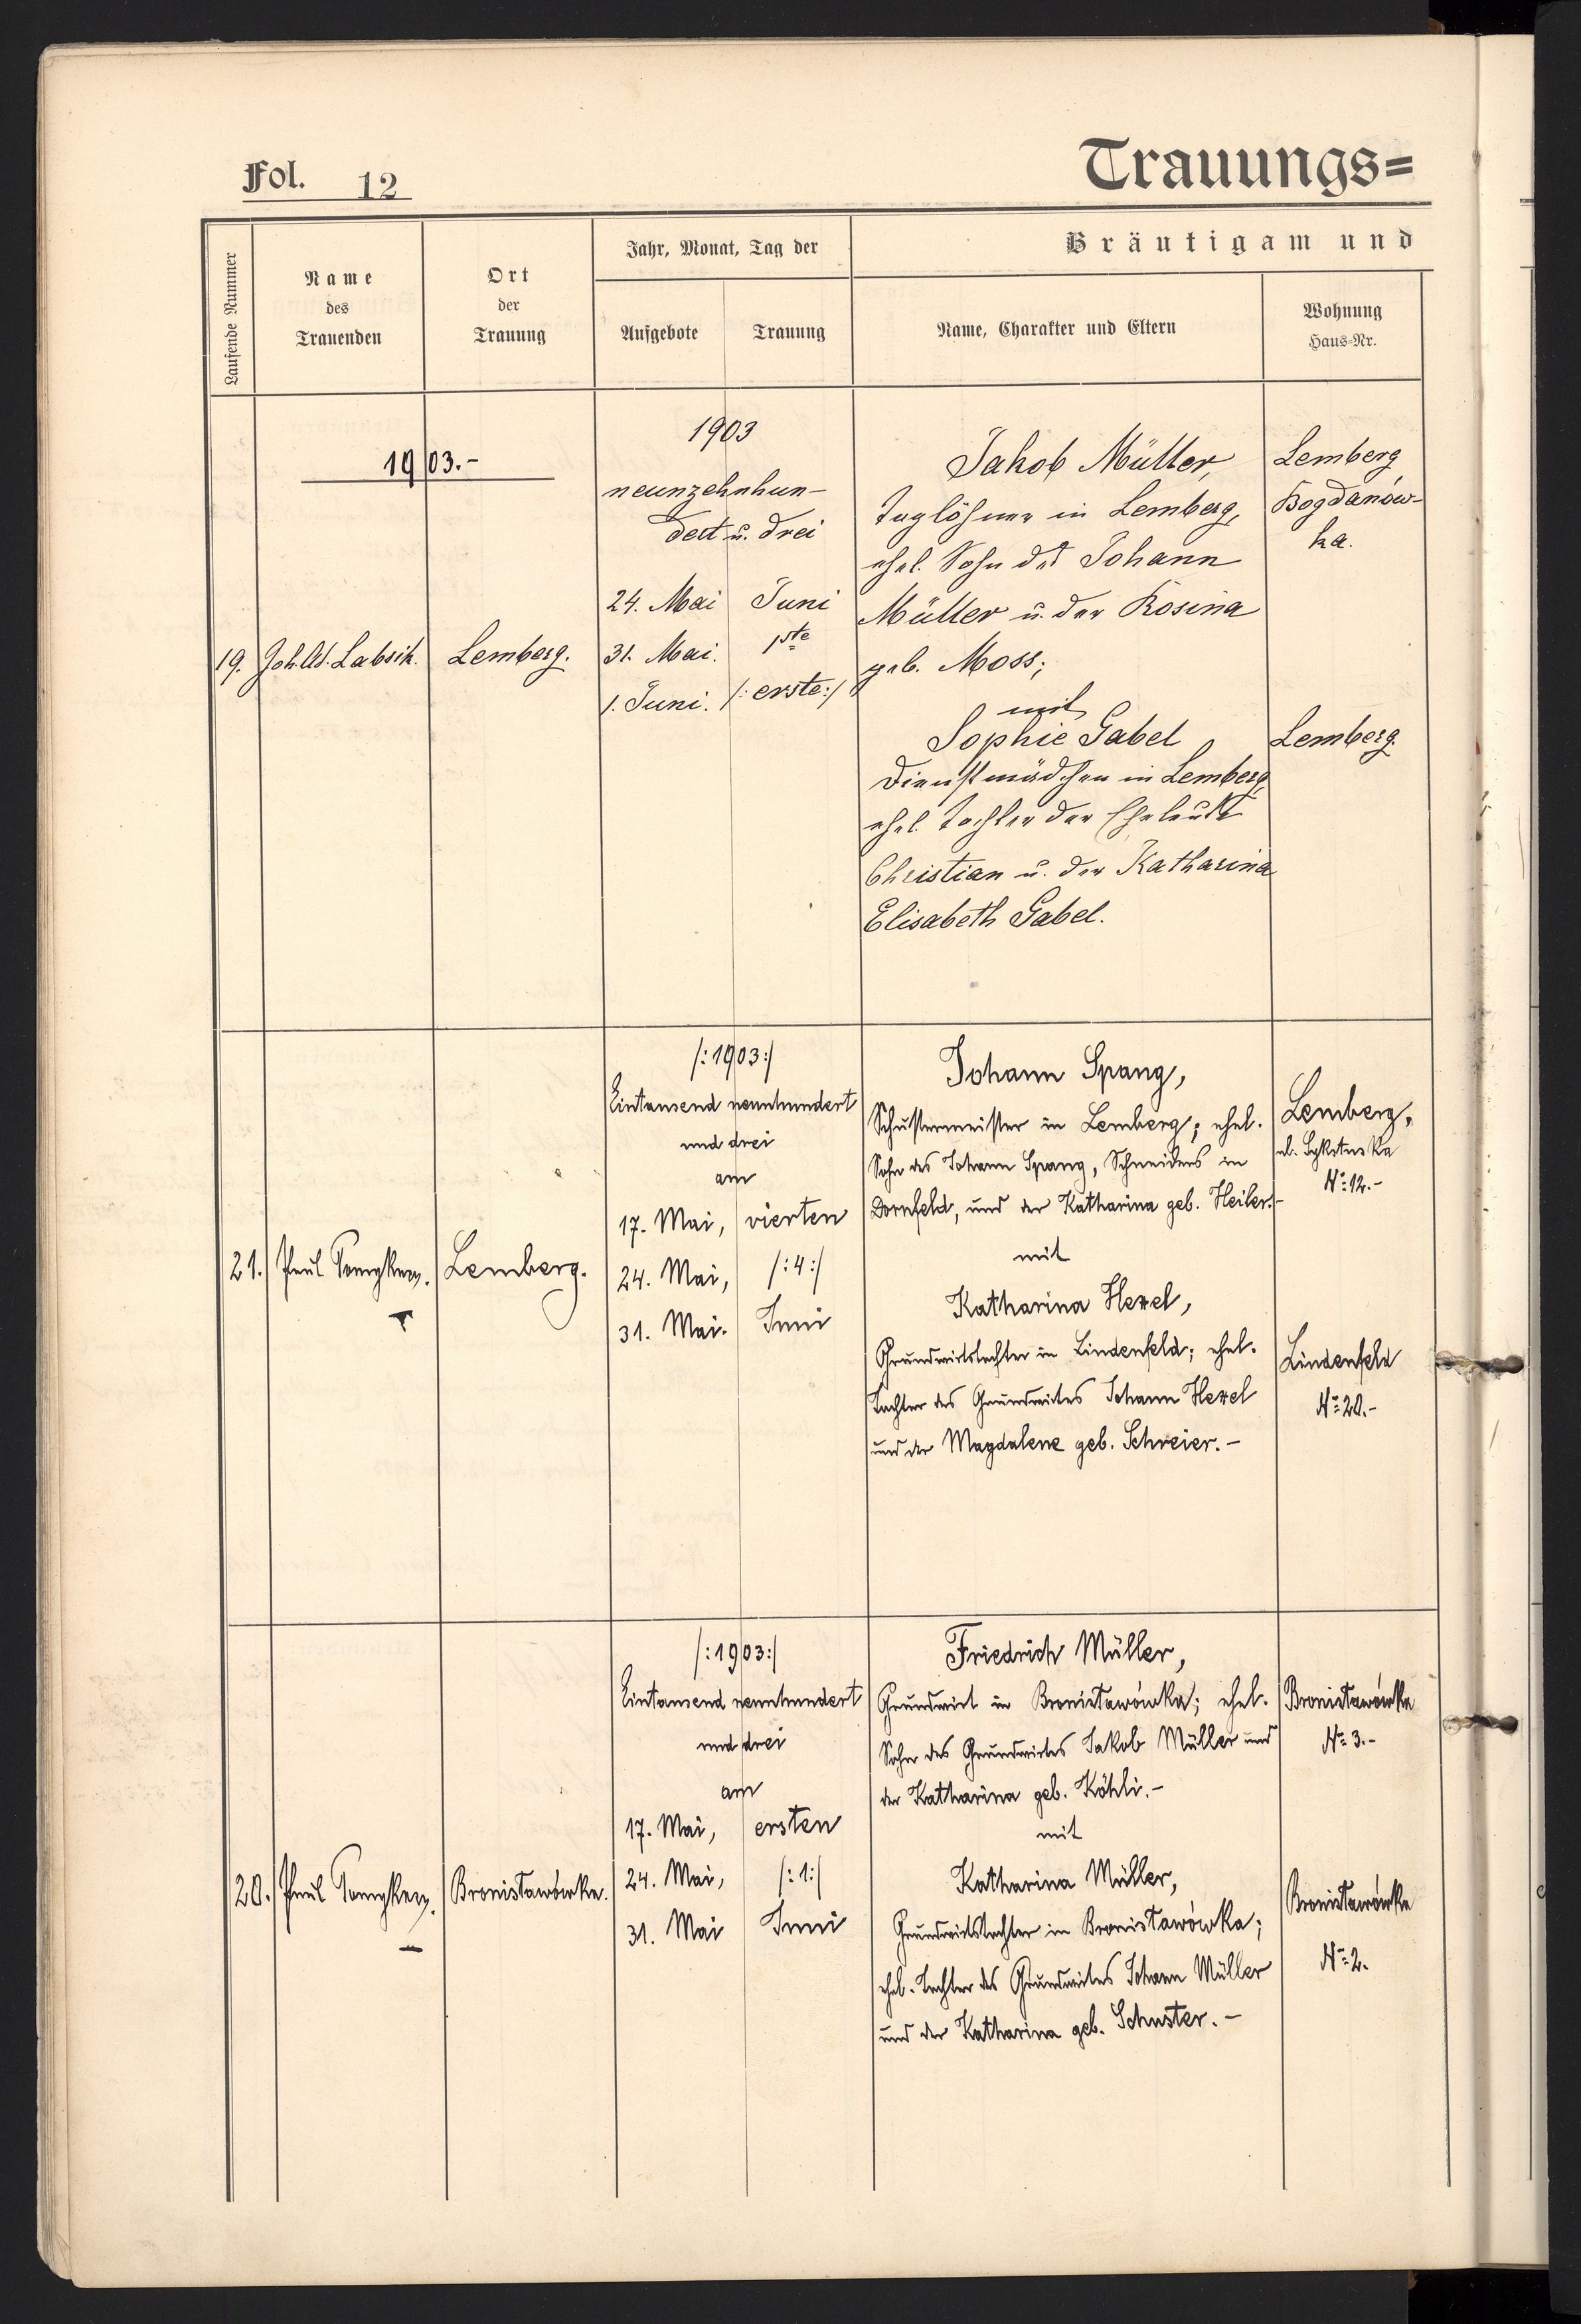 Fol. 12
Trauungs=
Laufende Nummer
Name
des
Trauenden
Ort
der
Trauung
Jahr, Monat, Tag der
Aufgebote
Trauung
Bräutigam und
Name, Charakter und Eltern
Wohnung
Haus-Nr.
1903.-
19.
Joh. Ad. Labsik.
Lemberg.
1903
neunzehnhun-
dert u. drei
24. Mai
31. Mai.
1. Juni.
Juni
1ste
/: erste :/
Jakob Müller,
Taglöhner in Lemberg,
ehel. Sohn des Johann
Müller u. der Rosina
geb. Moss;
mit
Sophie Gabel
Dienstmädchen in Lemberg,
ehel. Tochter der Eheleute
Christian u. der Katharina
Elisabeth Gabel.
Lemberg
Bogdanów-
ka.
Lemberg.
21.
Paul
Lemberg.
/: 1903 :/
Eintausend neunhundert
und drei
am
17. Mai,
24. Mai,
31. Mai.
vierten
/: 4 :/
Juni
Johann Spang,
Schustermeister in Lemberg; ehel.
Sohn des Johann Spang, Schneiders in
Dornfeld, und der Katharina geb. Heiler.-
mit
Katharina Hexel,
Grundwirtstochter in Lindenfeld; ehel.
Tochter des Grundwirtes Johann Hexel
und der Magdalene geb. Schreier.-
Lemberg,
ul. Sykstuska
No: 12.-
Lindenfeld
No: 20.-
20.
Paul
Bronisławówka.
/: 1903 :/
Eintausend neunhundert
und drei
am
17. Mai,
24. Mai,
31. Mai
ersten
/: 1 :/
Juni
Friedrich Müller,
Grundwirt in Bronisławówka; ehel.
Sohn des Grundwirtes Jakob Müller und
der Katharina geb. Köhli.-
mit
Katharina Müller,
Grundwirtstochter in Bronisławówka;
ehel. Tochter des Grundwirtes Johann Müller
und der Katharina geb. Schuster.-
Bronisławówka
No: 3.-
Bronisławówka
No: 2.